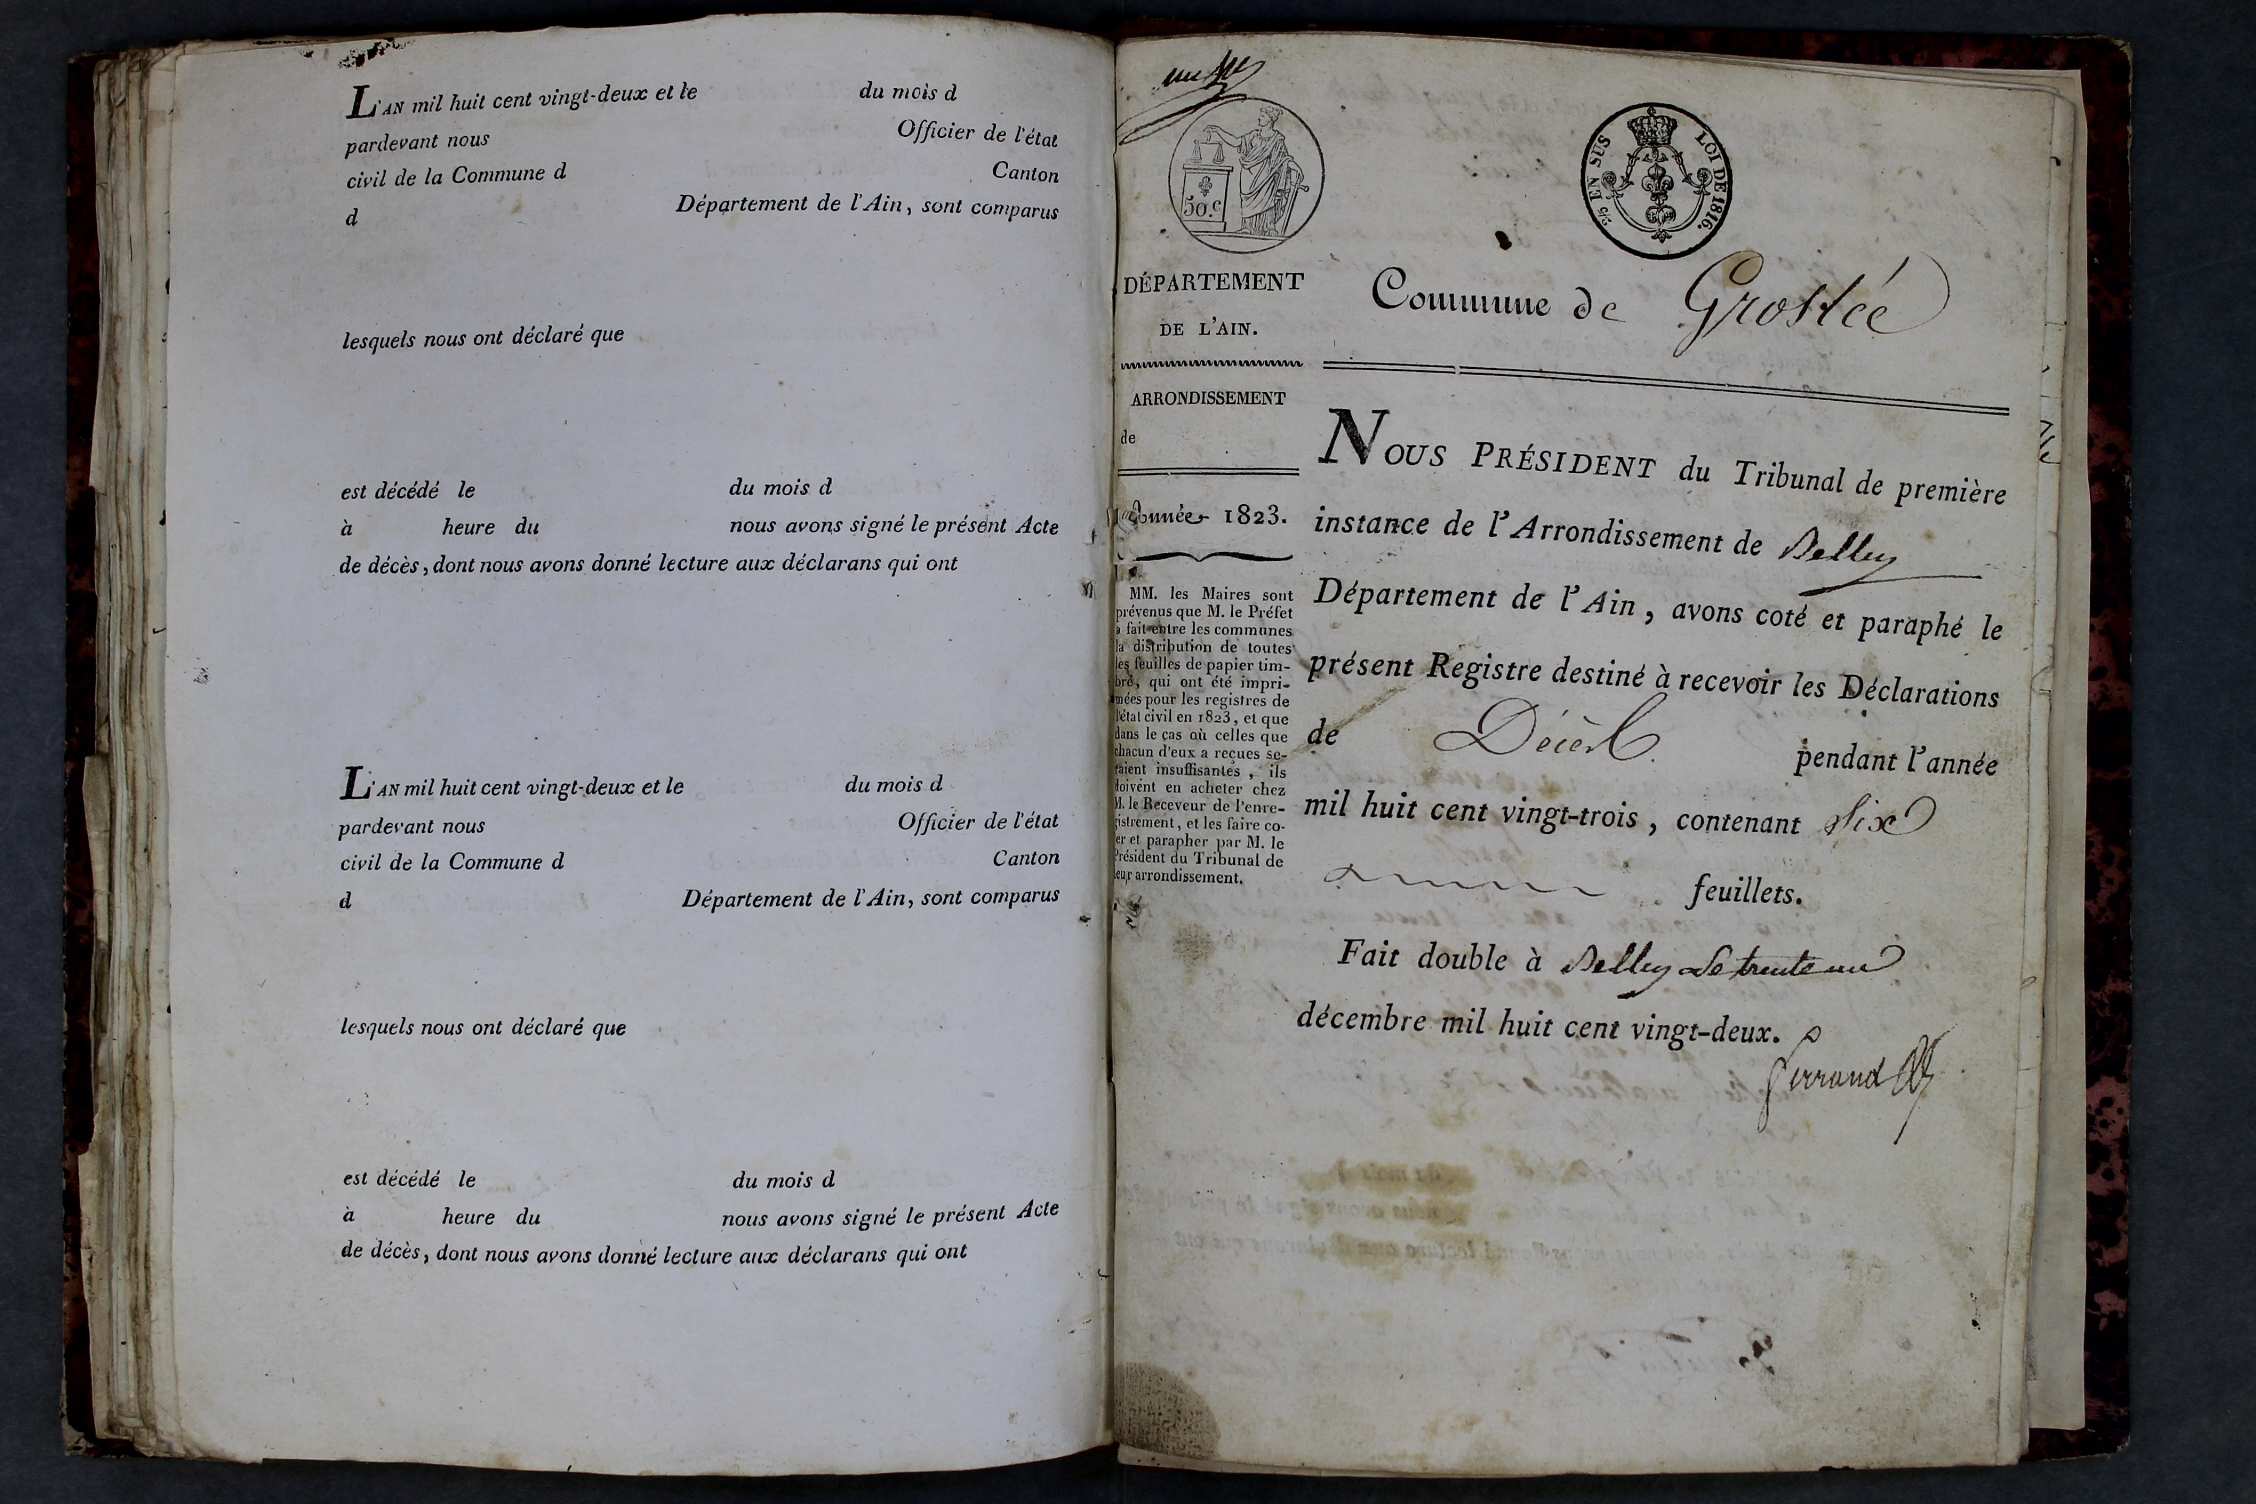 L'AN mil huit cent vingt-deux et le du mois d
pardevant nous Officier de l'état
civil de la Commune d Canton
d Département de l'Ain, sont comparus
lesquels nous ont déclaré que
est décédé le du mois d
à heure du nous avons signé le présent Acte
de décès, dont nous avons donné lecture aux déclarans qui ont
L'AN mil huit cent vingt-deux et le du mois d
pardevant nous Officier de l'état
civil de la Commune d Canton
d Département de l'Ain, sont comparus
lesquels nous ont déclaré que
est décédé le du mois d
à heure du nous avons signé le présent Acte
de décès, dont nous avons donné lecture aux déclarans qui ont
50.c
EN SUS LOI DE 1816.
DÉPARTEMENT
DE L'AIN.
ARRONDISSEMENT
de
Année 1823.
MM. les Maires sont
prévenus que M. le Préfet
a fait entre les communes
la distribution de toutes
les feuilles de papier tim-
bré, qui ont été impri-
mées pour les registres de
l'état civil en 1823, et que
dans le cas où celles que
chacun d'eux a reçues se-
raient insuffisantes, ils
doivent en acheter chez
M. le Receveur de l'enre-
gistrement, et les faire co-
ter et parapher par M. le
Président du Tribunal de
leur arrondissement.
Commune de Groslée
NOUS PRÉSIDENT du Tribunal de première
instance de l'Arrondissement de Belley
Département de l'Ain, avons coté et paraphé le
présent Registre destiné à recevoir les Déclarations
de Décès pendant l'année
mil huit cent vingt-trois, contenant Six
feuillets.
Fait double à Belley Le trente un
décembre mil huit cent vingt-deux.